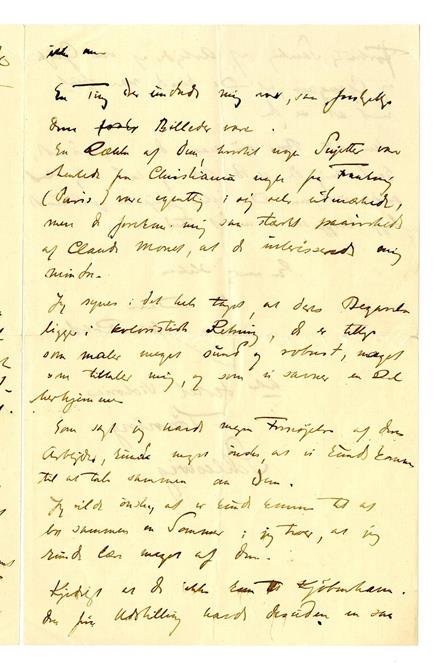 ikke
En Ting der undrede mig var, saa forskjellige
Deres Billeder vare.
En Række af Dem, hvortil nogle Sujetter var
hentede fra Christiania nogle fra
(Paris) vare egentlig i sig selv udmærkede,
men de forekom mig saa stærkt paavirkede
af Claude Monet, at de interesserede mig
mindre.
Jeg synes i det hele taget, at deres Begavelse
ligger i koloristisk Retning, De er tillige
som maler meget sund og robust, noget
som tiltaler mig, og som vi savner en Del
herhjemme
Som sagt jeg havde megen Fornøjelse af Deres
Arbejder, vilde meget ønske, at vi kunde komme
til at tale sammen om Dem.
Jeg vilde ønske, at vi kunde komme til at
bo sammen en Sommer; jeg troer, at jeg
kunde lære meget af Dem.
Kjedeligt at De ikke kom til Kjøbenhavn.
Den frie Udstilling havde desuden en saa